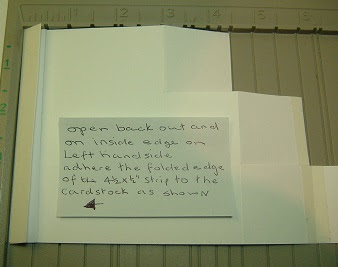 1 2 3 4 5 6
1
2
open back out and
on inside edge on
Left hand side
adhere the folded edge
of 4½ x ½" strip to the
Cardstock as shown